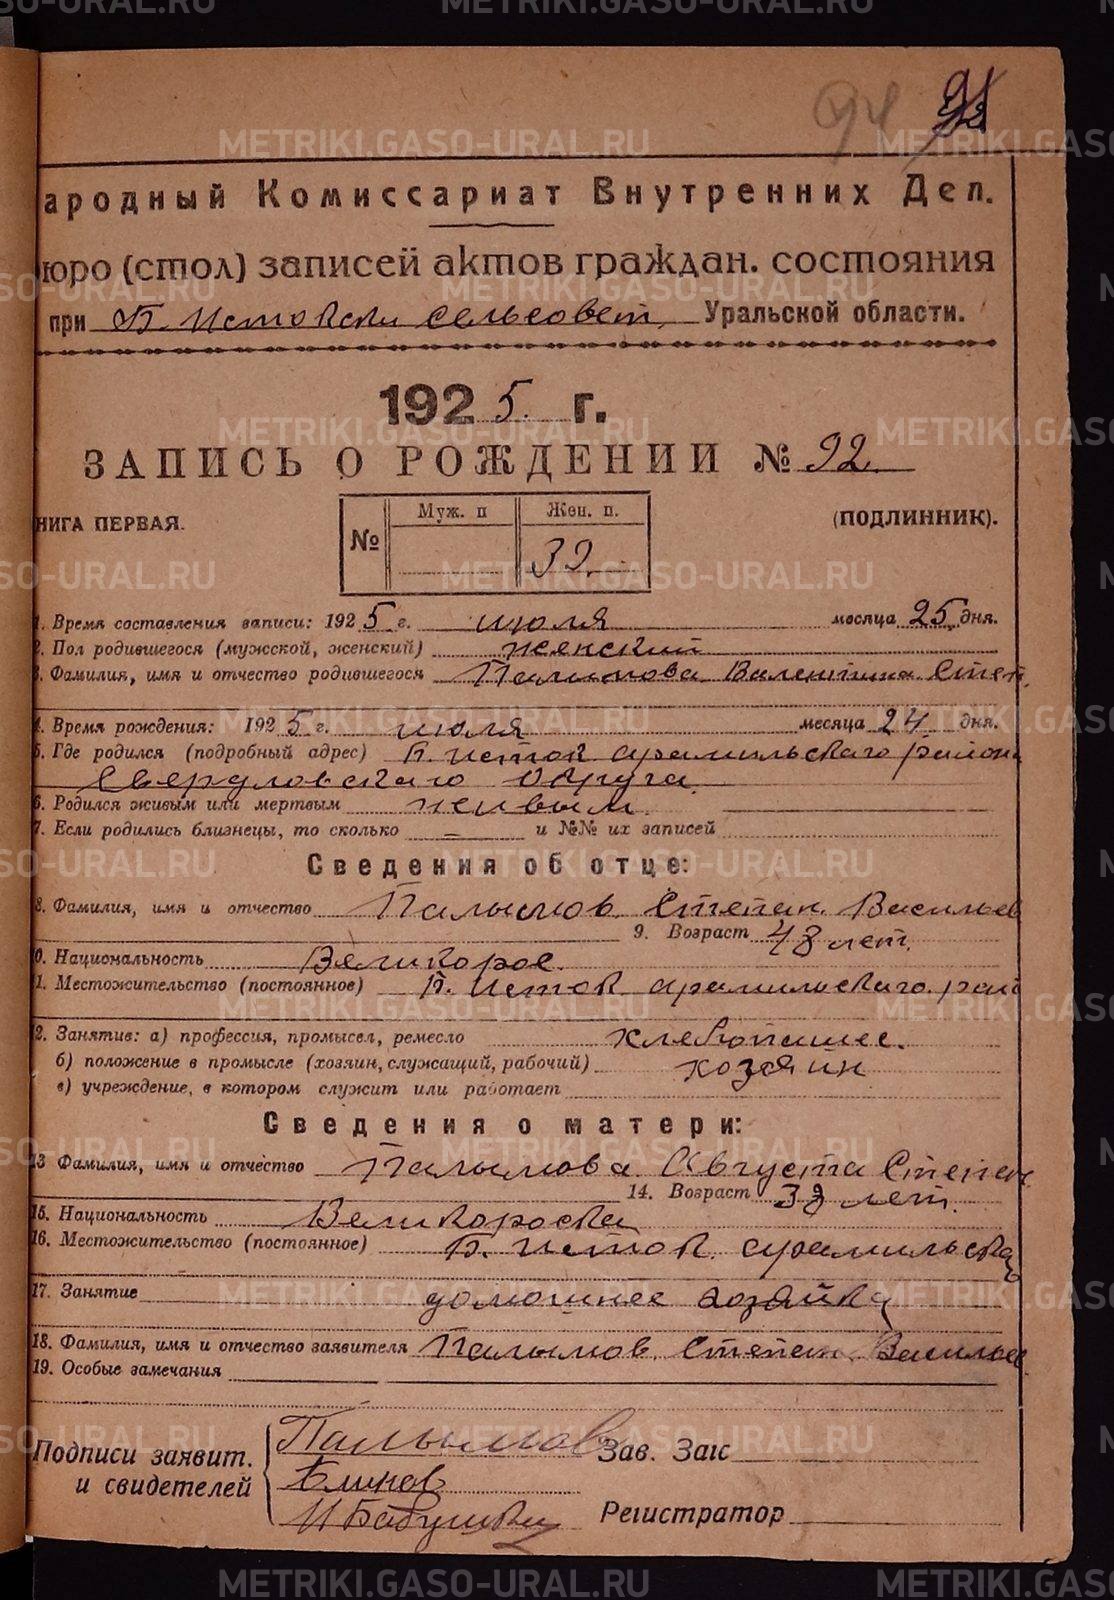 94
ародный Комиссариат Внутренних Дел.
юро (стол) записей актов граждан. состояния
при Б. Истокски сельсовет, Уральской области.
1925 г.
ЗАПИСЬ О РОЖДЕНИИ № 92.
НИГА ПЕРВАЯ.
(ПОДЛИННИК).
№ Муж. п Жен. п.
39.
1. Время составления записи: 1925 г. июля месяца 25 дня.
2. Пол родившегося (мужской, женский) женский
3. Фамилия, имя и отчество родившегося Палымова Валентина Степ.
4. Время рождения: 1925 г. июля месяца 24 дня.
5. Где родился (подробный адрес) Б. исток арамильскаго района
Свердловскаго округа.
6. Родился живым или мертвым живым.
7. Если родились близнецы, то сколько – и №№ их записей
Сведения об отце:
8. Фамилия, имя и отчество Палымов Степан Васильев
9. Возраст 48 лет.
0. Национальность Великорос.
1. Местожительство (постоянное) Б. исток арамильскаго рай
2. Занятив: а) профессия, промысел, ремесло хлебопашес.
б) положение в промысле (хозяин, служащий, рабочий) хозяин
в) учреждение, в котором служит или работает
Сведения о матери:
13 Фамилия, имя и отчество Палымова Августа Степан
14. Возраст 38 лет.
15. Национальность Великороска
16. Местожительство (постоянное) Б. исток арамильска
17. Занятие домошнее хозяйка
18. Фамилия, имя и отчество заявителя Палымов. Степан. Васильев
19. Особые замечания
Подписи заявит. Палымов Зав. Загс
и свидетелей Блинов
И Бабушки Регистратор
METRIKI.GASO-URAL.RU